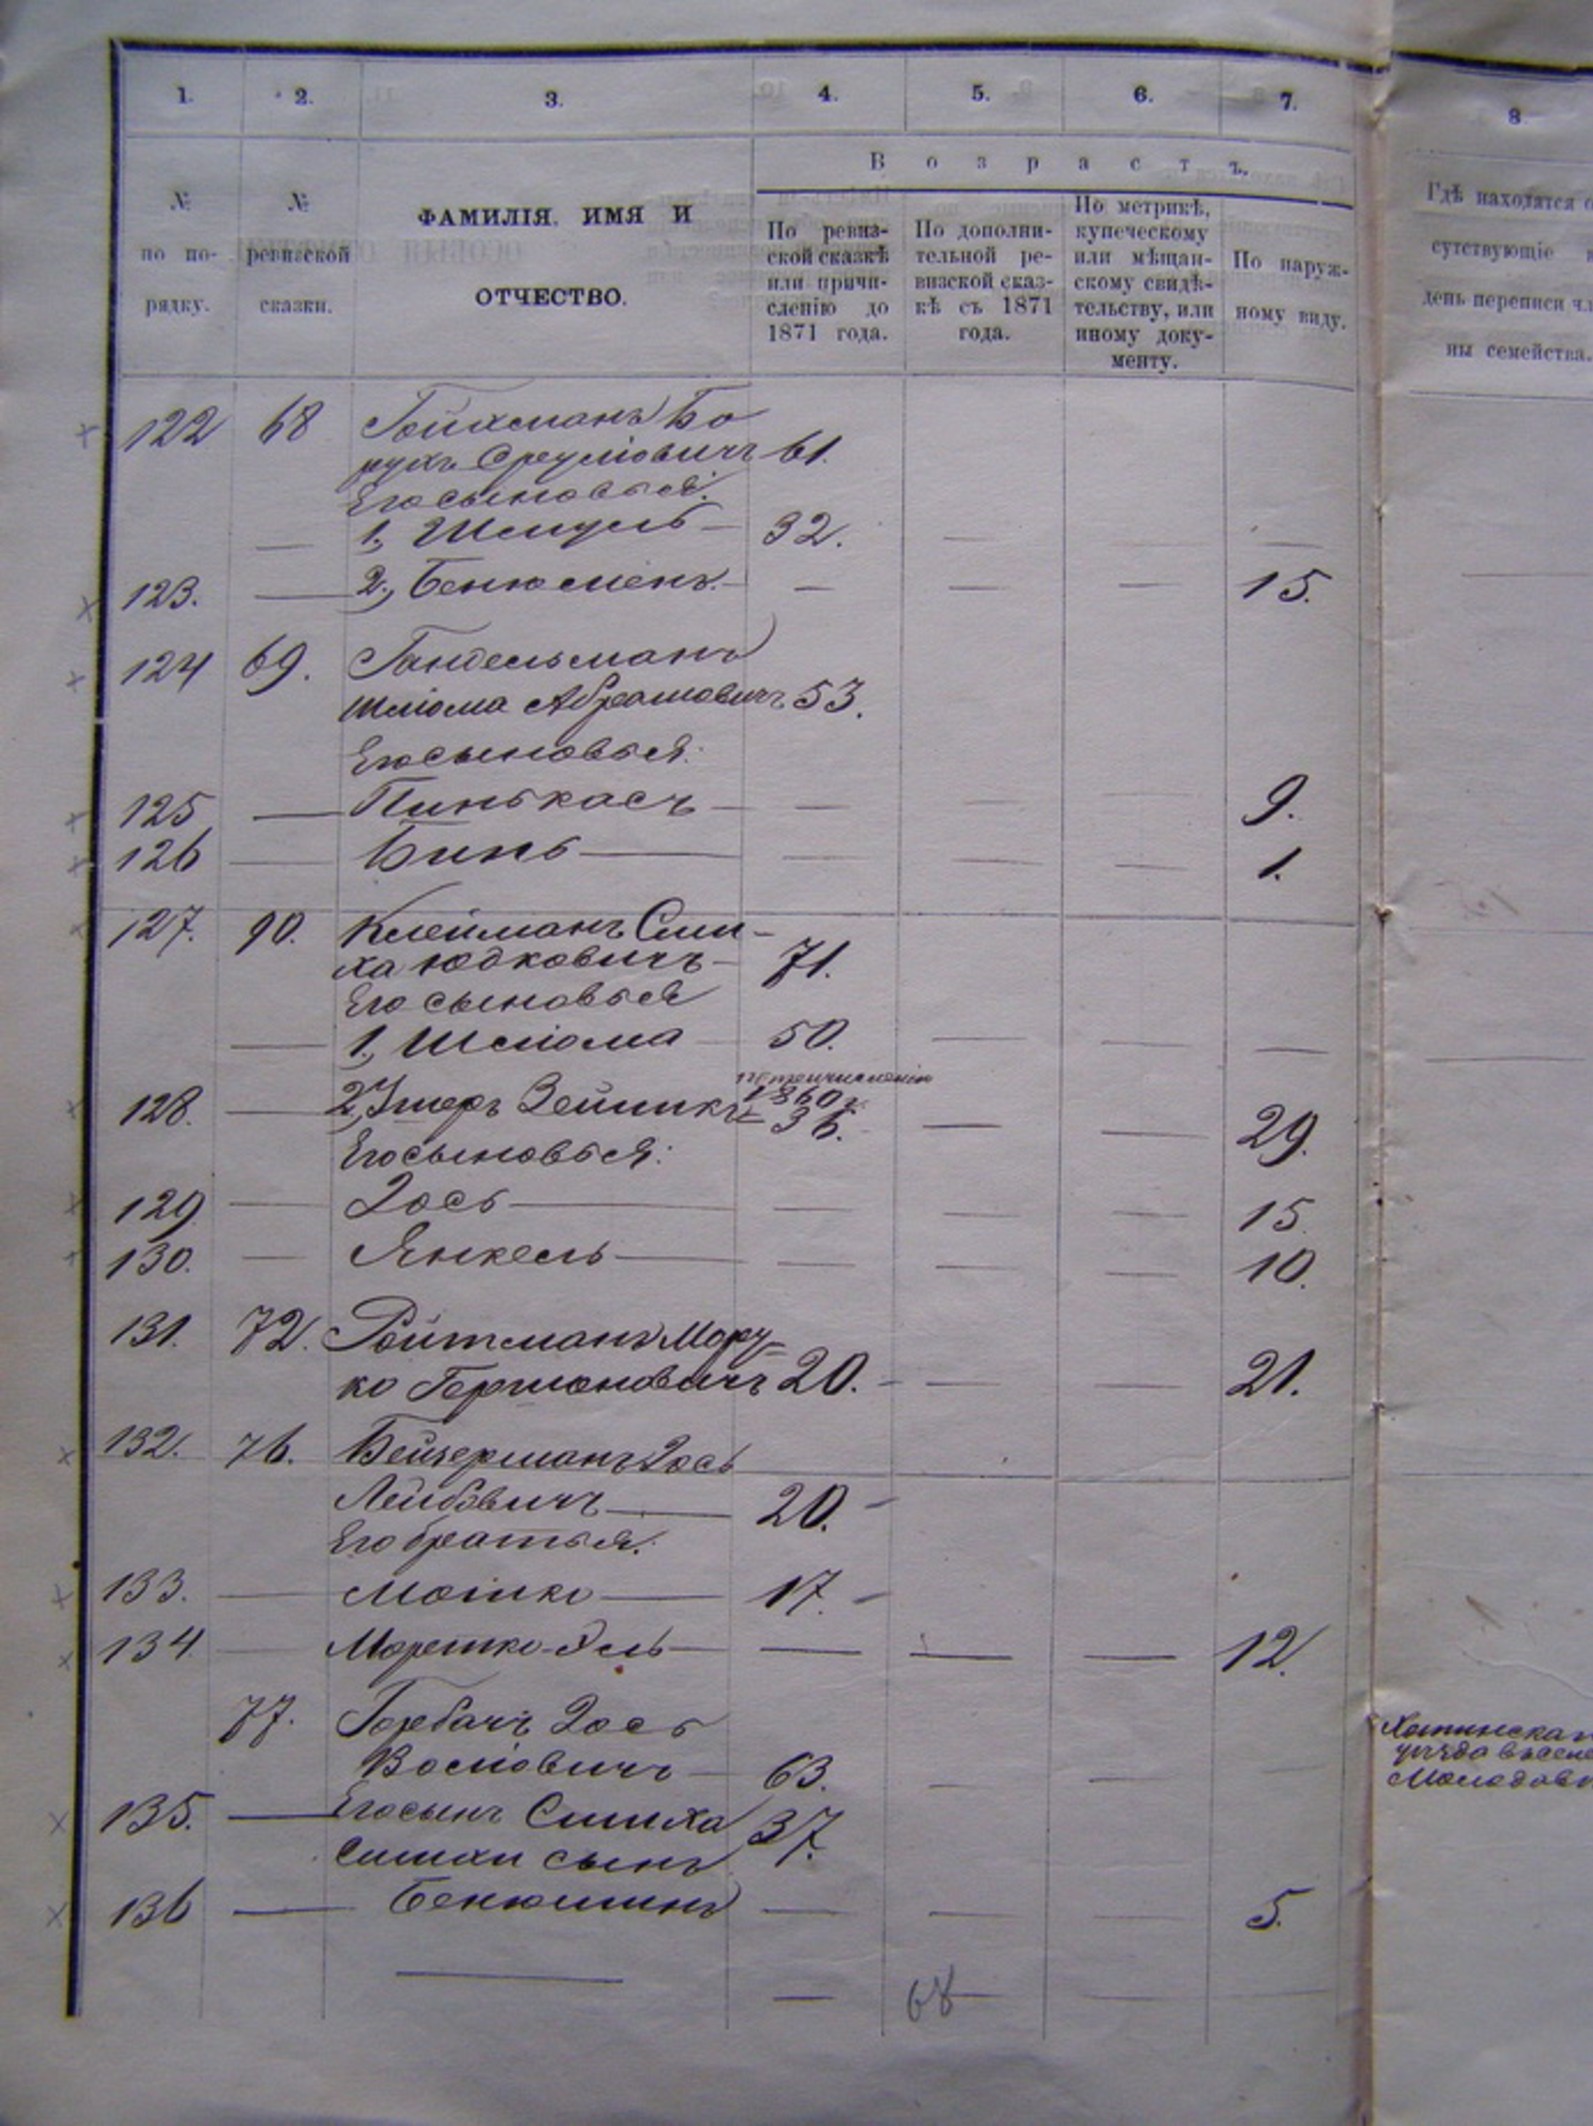 1. 2. 3. 4. 5. 6. 7. 8
Возрастъ.
№ по по-рядку.
№ ревизской сказки.
ФАМИЛІЯ, ИМЯ И
ОТЧЕСТВО.
По ревиз-
ской сказкѣ
или причи-
сленію до
1871 года.
По дополни-
тельной ре-
визской сказ-
кѣ съ 1871
года.
По метрикѣ,
купеческому
или мѣщан-
скому свидѣ-
тельству, или
иному доку-
менту.
По наруж-
ному виду.
Гдѣ находятся
сутствующіе
день переписи чл
ны семейства.
122 68 Гойхманъ Бо
рухъ Сруліовичъ 61.
Его сыновья:
— 1, Шмуль — 32. — — —
123. — 2, Бенюмень. — — — — 15.
124 69. Гандельманъ
Шліома Абрамовичъ 53.
Его сыновья:
125 — Пинькасъ — — — — 9.
126 — Бинь — — — — 1.
127. 70. Клейманъ Сим-
ха Юдковичъ — 71.
Его сыновья
— 1, Шліома 50. — — —
1860 г.
128. — 2, Умеръ Зейлик 36. — — 29.
Его сыновья:
129 — Іось — — — — 15.
130. — Янкель — — — — 10.
131. 72. Ройтманъ Мор
ко Гершоновичъ 20. — — — 21.
132. 76. Бейдерманъ Іось
Лейбовичъ — 20. —
Его братья:
133. — Мошко — 17. —
134 — Мортко-Эль — — — — 12.
77. Горбачъ Іось
Вольовичъ — 63. — — —
135. — Его сынъ Симха 37.
Симхи сынъ
136 — Бенюминъ — — — 5.
— — 68 — —
Хотинска
уѣзда